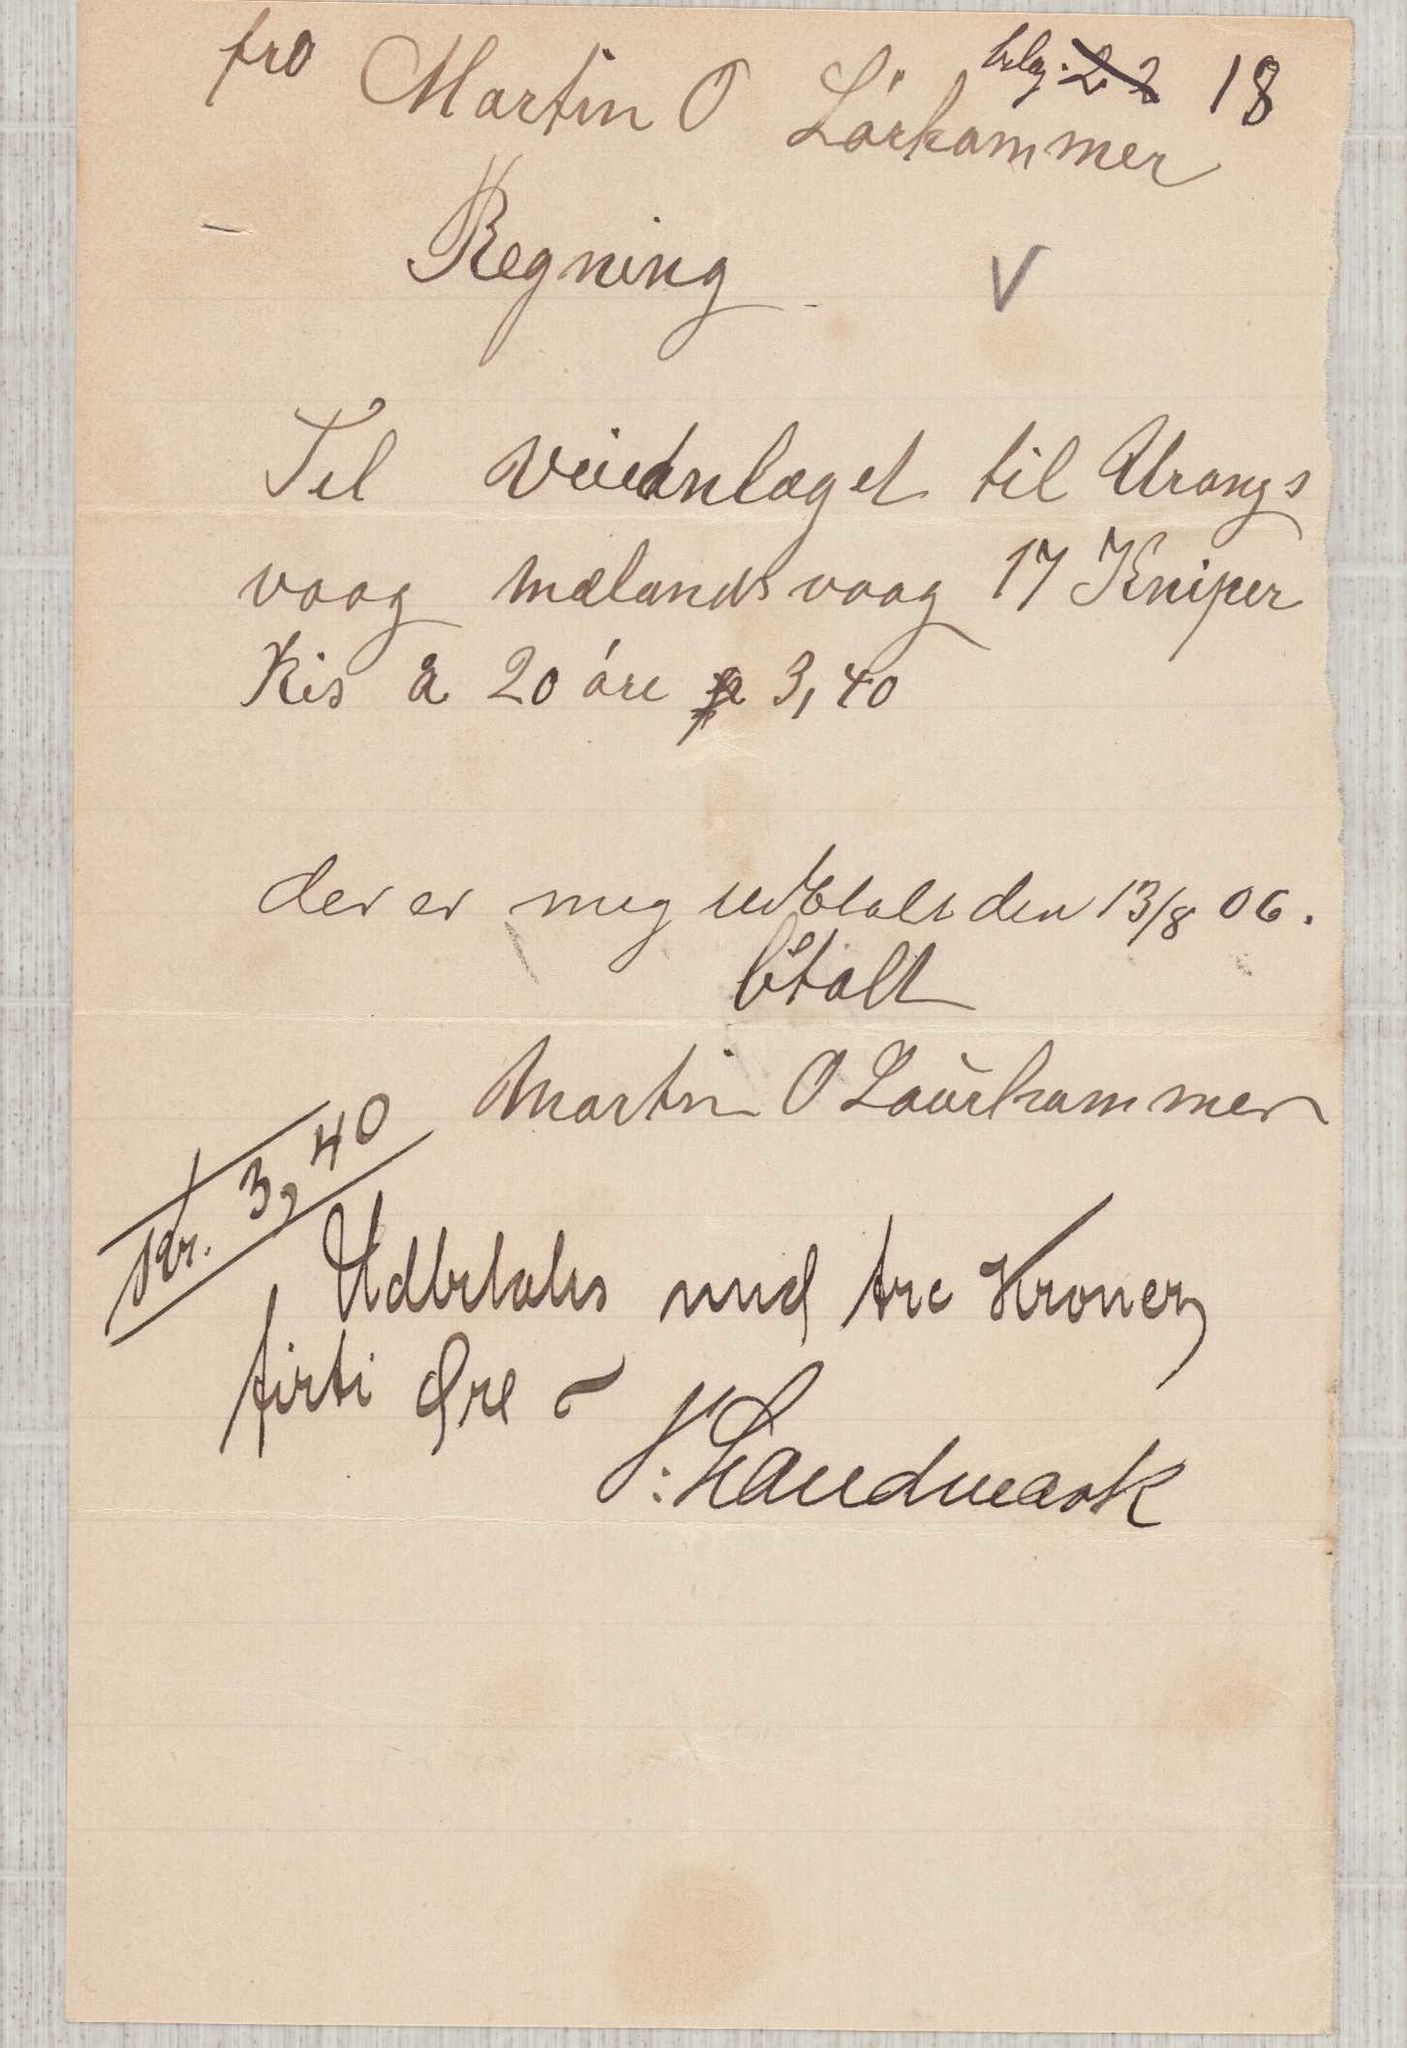 bilag. 2 2 18
fra Martin O Lórkammer
Regning
V
Til veianlæget til Urangs
vaag Mælandsvaag 17 Kniper
Ris a 20 óre 3,40
der er mig udbetalt den 13/8 06.
betalt
Martin O Laurkammer
Kr. 3,40
Udbetales med tre Kroner,
firti Øre ~
Landmark